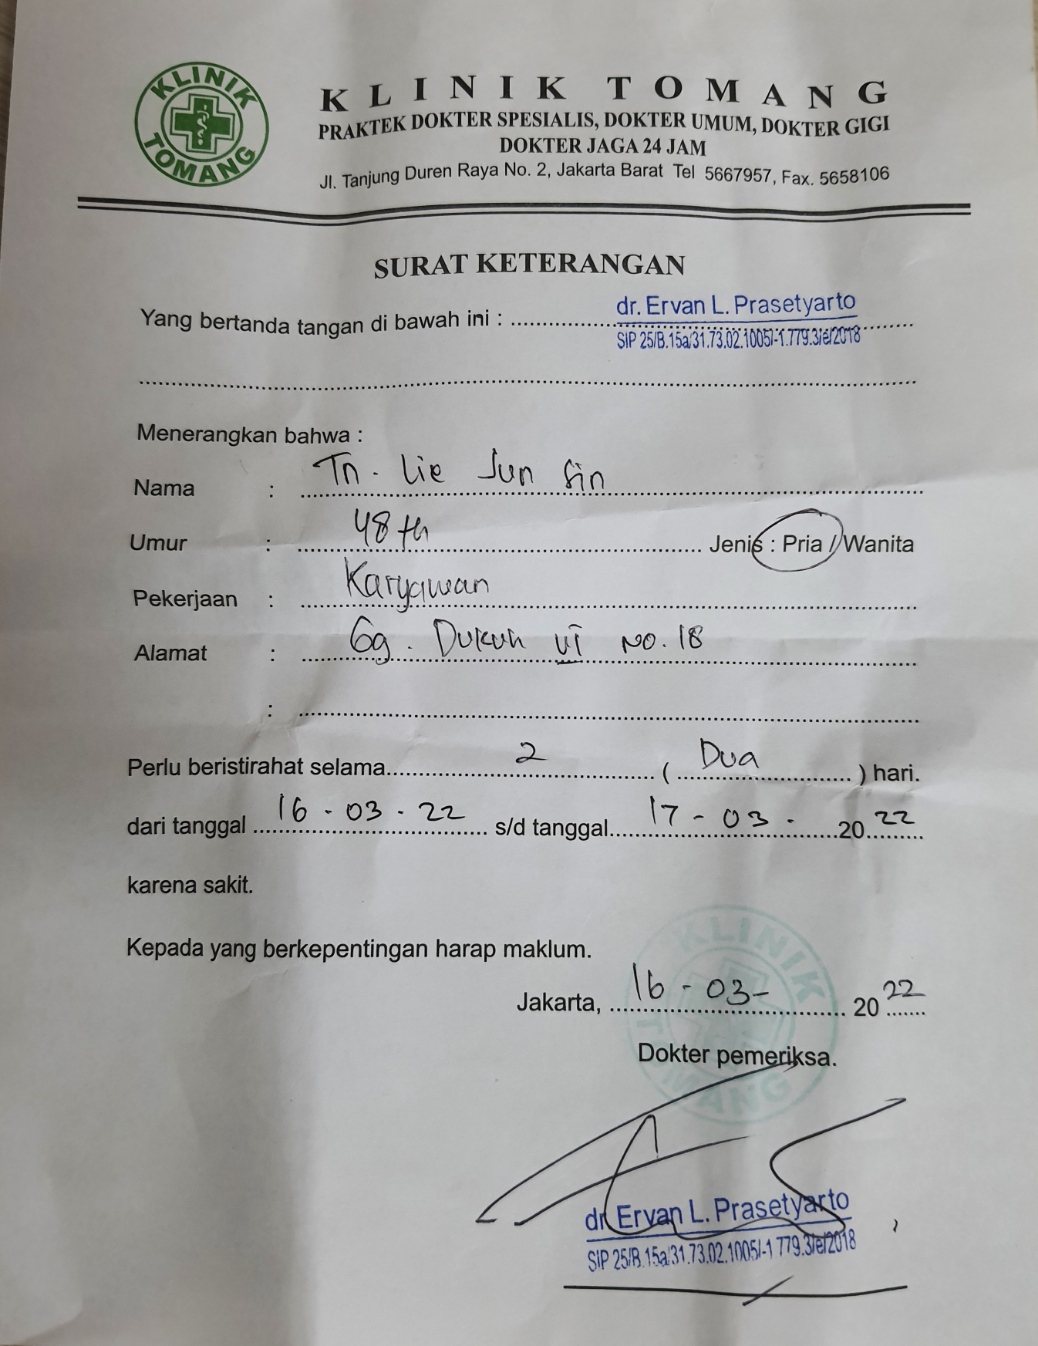 KLINIK TOMANG
KLINIK TOMANG
PRAKTEK DOKTER SPESIALIS, DOKTER UMUM, DOKTER GIGI
DOKTER JAGA 24 JAM
Jl. Tanjung Duren Raya No. 2, Jakarta Barat Tel 5667957, Fax. 5658106
SURAT KETERANGAN
Yang bertanda tangan di bawah ini : dr. Ervan L. Prasetyarto
SIP 25/B.15a/31.73.02.1005/-1.779.3/e/2018
Menerangkan bahwa :
Nama : Tn. Lie Jun Sin
Umur : 48 th Jenis : Pria / Wanita
Pekerjaan : Karyawan
Alamat : Gg. Dukuh VI No. 18
:
Perlu beristirahat selama 2 ( Dua ) hari.
dari tanggal 16-03-22 s/d tanggal 17-03- 2022
karena sakit.
Kepada yang berkepentingan harap maklum.
Jakarta, 16-03- 2022
KLINIK TOMANG
Dokter pemeriksa.
dr. Ervan L. Prasetyarto
SIP 25/B.15a/31.73.02.1005/-1 779.3/e/2018